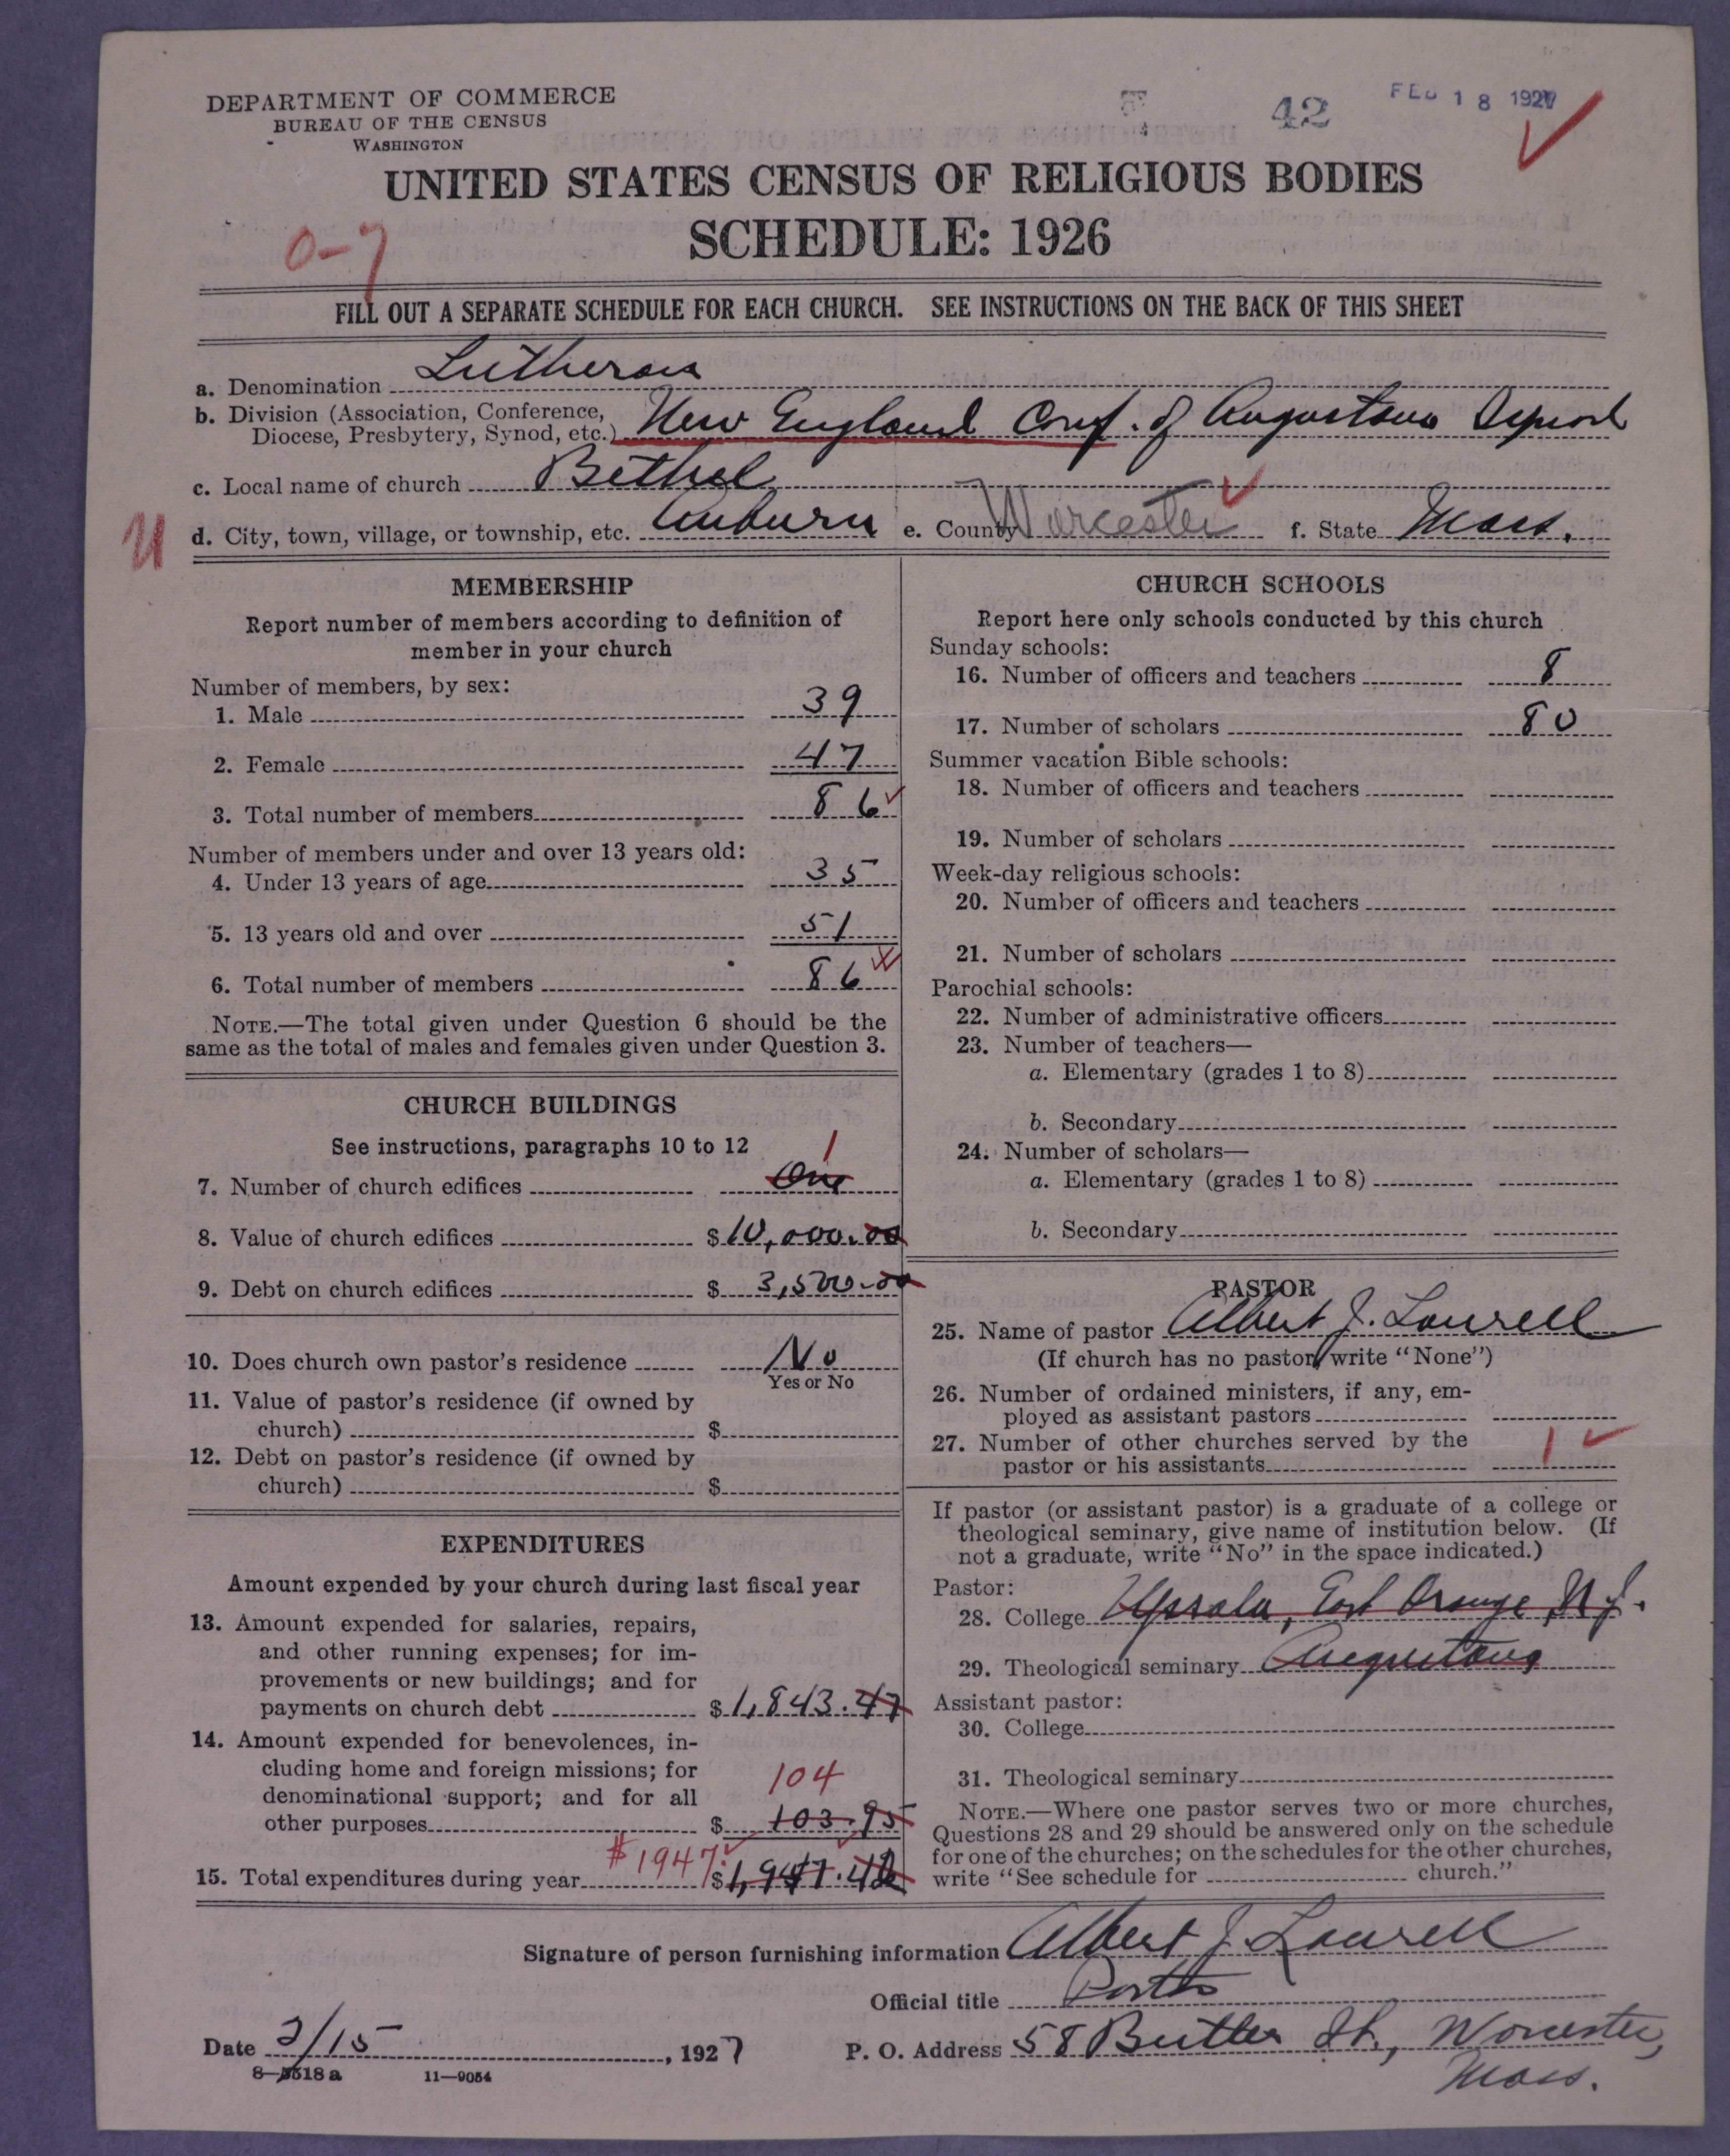 DEPARTMENT OF COMMERCE
BUREAU OF THE CENSUS
WASHINGTON
42
FEB 18 1927
UNITED STATES CENSUS OF RELIGIOUS BODIES
SCHEDULE: 1926
0-7
FILL OUT A SEPARATE SCHEDULE FOR EACH CHURCH. SEE INSTRUCTIONS ON THE BACK OF THIS SHEET
a. Denomination Lutheran
b. Division (Association, Conference,
Diocese, Presbytery, Synod, etc.) New England Conf. of Augustana Synod
c. Local name of church Bethel
U
d. City, town, village, or township, etc. Auburn e. County Worcester f. State Mass.
MEMBERSHIP
Report number of members according to definition of
member in your church
Number of members, by sex:
1. Male 39
2. Female 47
3. Total number of members 86
Number of members under and over 13 years old:
4. Under 13 years of age 35
5. 13 years old and over 51
6. Total number of members 86
NOTE.—The total given under Question 6 should be the
same as the total of males and females given under Question 3.
CHURCH BUILDINGS
See instructions, paragraphs 10 to 12
1
7. Number of church edifices One
8. Value of church edifices $10,000.00
9. Debt on church edifices $ 3,500.00
10. Does church own pastor's residence No
Yes or No
11. Value of pastor's residence (if owned by
church) $
12. Debt on pastor's residence (if owned by
church) $
EXPENDITURES
Amount expended by your church during last fiscal year
13. Amount expended for salaries, repairs,
and other running expenses; for im-
provements or new buildings; and for
payments on church debt $1,843.47
14. Amount expended for benevolences, in-
cluding home and foreign missions; for
denominational support; and for all
104
other purposes $ 103.95
15. Total expenditures during year $1947 $1,947.42
CHURCH SCHOOLS
Report here only schools conducted by this church
Sunday schools:
16. Number of officers and teachers 8
17. Number of scholars 80
Summer vacation Bible schools:
18. Number of officers and teachers
19. Number of scholars
Week-day religious schools:
20. Number of officers and teachers
21. Number of scholars
Parochial schools:
22. Number of administrative officers
23. Number of teachers—
a. Elementary (grades 1 to 8)
b. Secondary
24. Number of scholars—
a. Elementary (grades 1 to 8)
b. Secondary
PASTOR
25. Name of pastor Albert J. Laurell
(If church has no pastor, write "None")
26. Number of ordained ministers, if any, em-
ployed as assistant pastors
27. Number of other churches served by the
pastor or his assistants 1
If pastor (or assistant pastor) is a graduate of a college or
theological seminary, give name of institution below. (If
not a graduate, write "No" in the space indicated.)
Pastor:
28. College Upsala, East Orange, N.J.
29. Theological seminary Augustana
Assistant pastor:
30. College
31. Theological seminary
NOTE.—Where one pastor serves two or more churches,
Questions 28 and 29 should be answered only on the schedule
for one of the churches; on the schedules for the other churches,
write "See schedule for church."
Signature of person furnishing information Albert J. Laurell
Official title Pastor
Date 2/15, 1927 P. O. Address 58 Butler St., Worcester,
Mass.
8—5518 a 11—9054